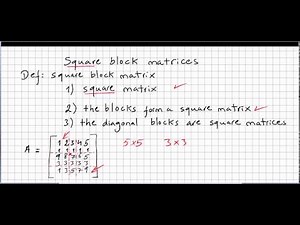 Square block matrices
Def: square block matrix
1) square matrix
2) the blocks form a square matrix
3) the diagonal blocks are square matrices
A = 5x5 3x3
1 2 3 4 5
1 1 1 1 1
9 8 7 6 5
3 3 3 3 3
1 3 5 7 9